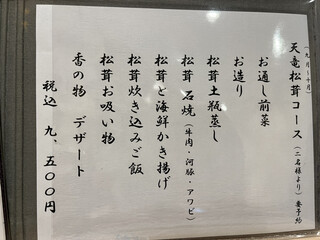 (九月~十月)
天竜松茸コース(二名様より)要予約
お通し前菜
お造り
松茸土瓶蒸し
松茸 石焼(牛肉・河豚・アワビ)
松茸と海鮮かき揚げ
松茸炊き込みご飯
松茸お吸い物
香の物 デザート
税込 九、五〇〇円